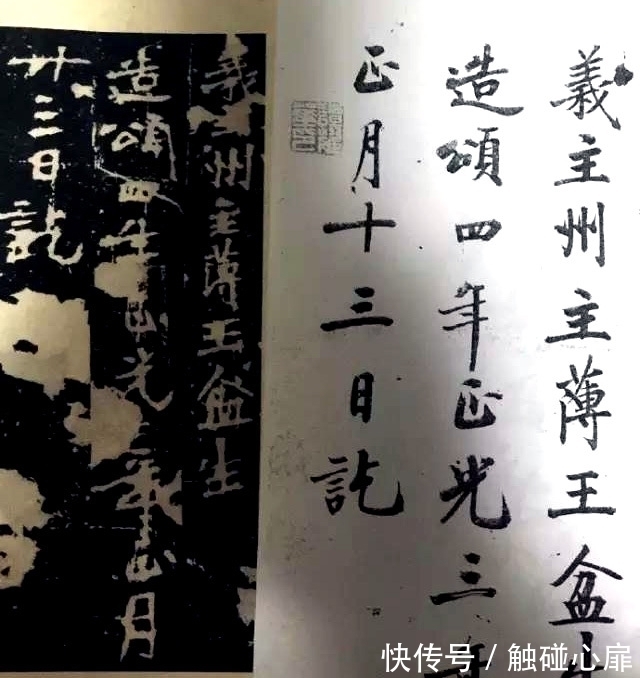 義主州主薄王盆生
造頌四年正光三年
正月十三日訖
義州主薄王盆生
造頌四年正光三年正月
廿三日訖
快传号 / 触碰心扉